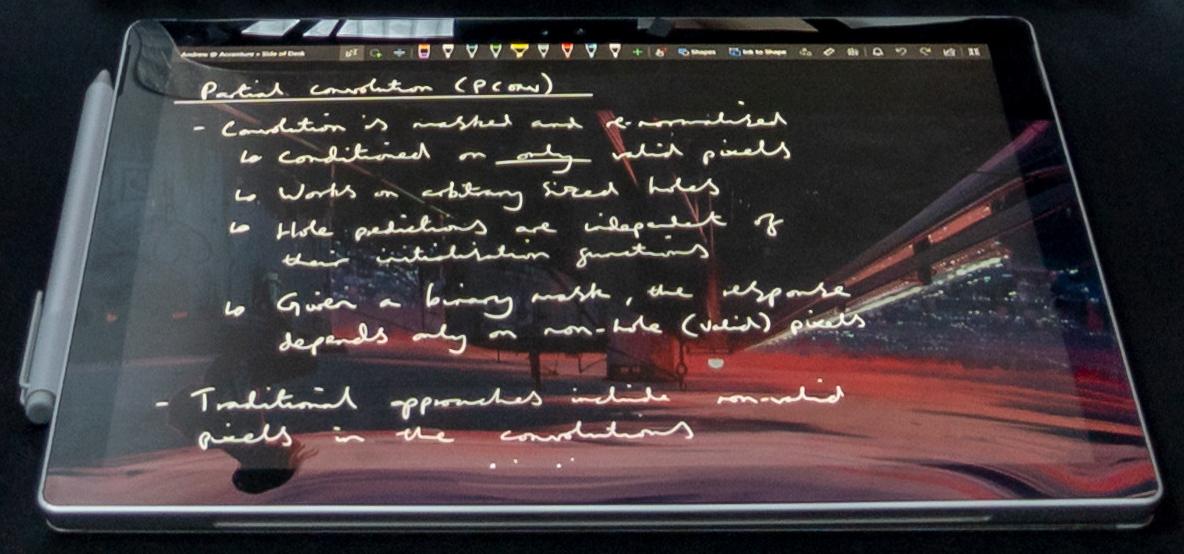 Andrew @ Accenture • Side of Desk
Shapes
Ink to Shape
Partial convolution (PConv)
- Convolution is masked and re-normalised
↳ Conditioned on only valid pixels
↳ Works on arbitrary sized holes
↳ Hole predictions are independent of
their initialisation functions
↳ Given a binary mask, the response
depends only on non-hole (valid) pixels
- Traditional approaches include non-valid
pixels in the convolutions
....